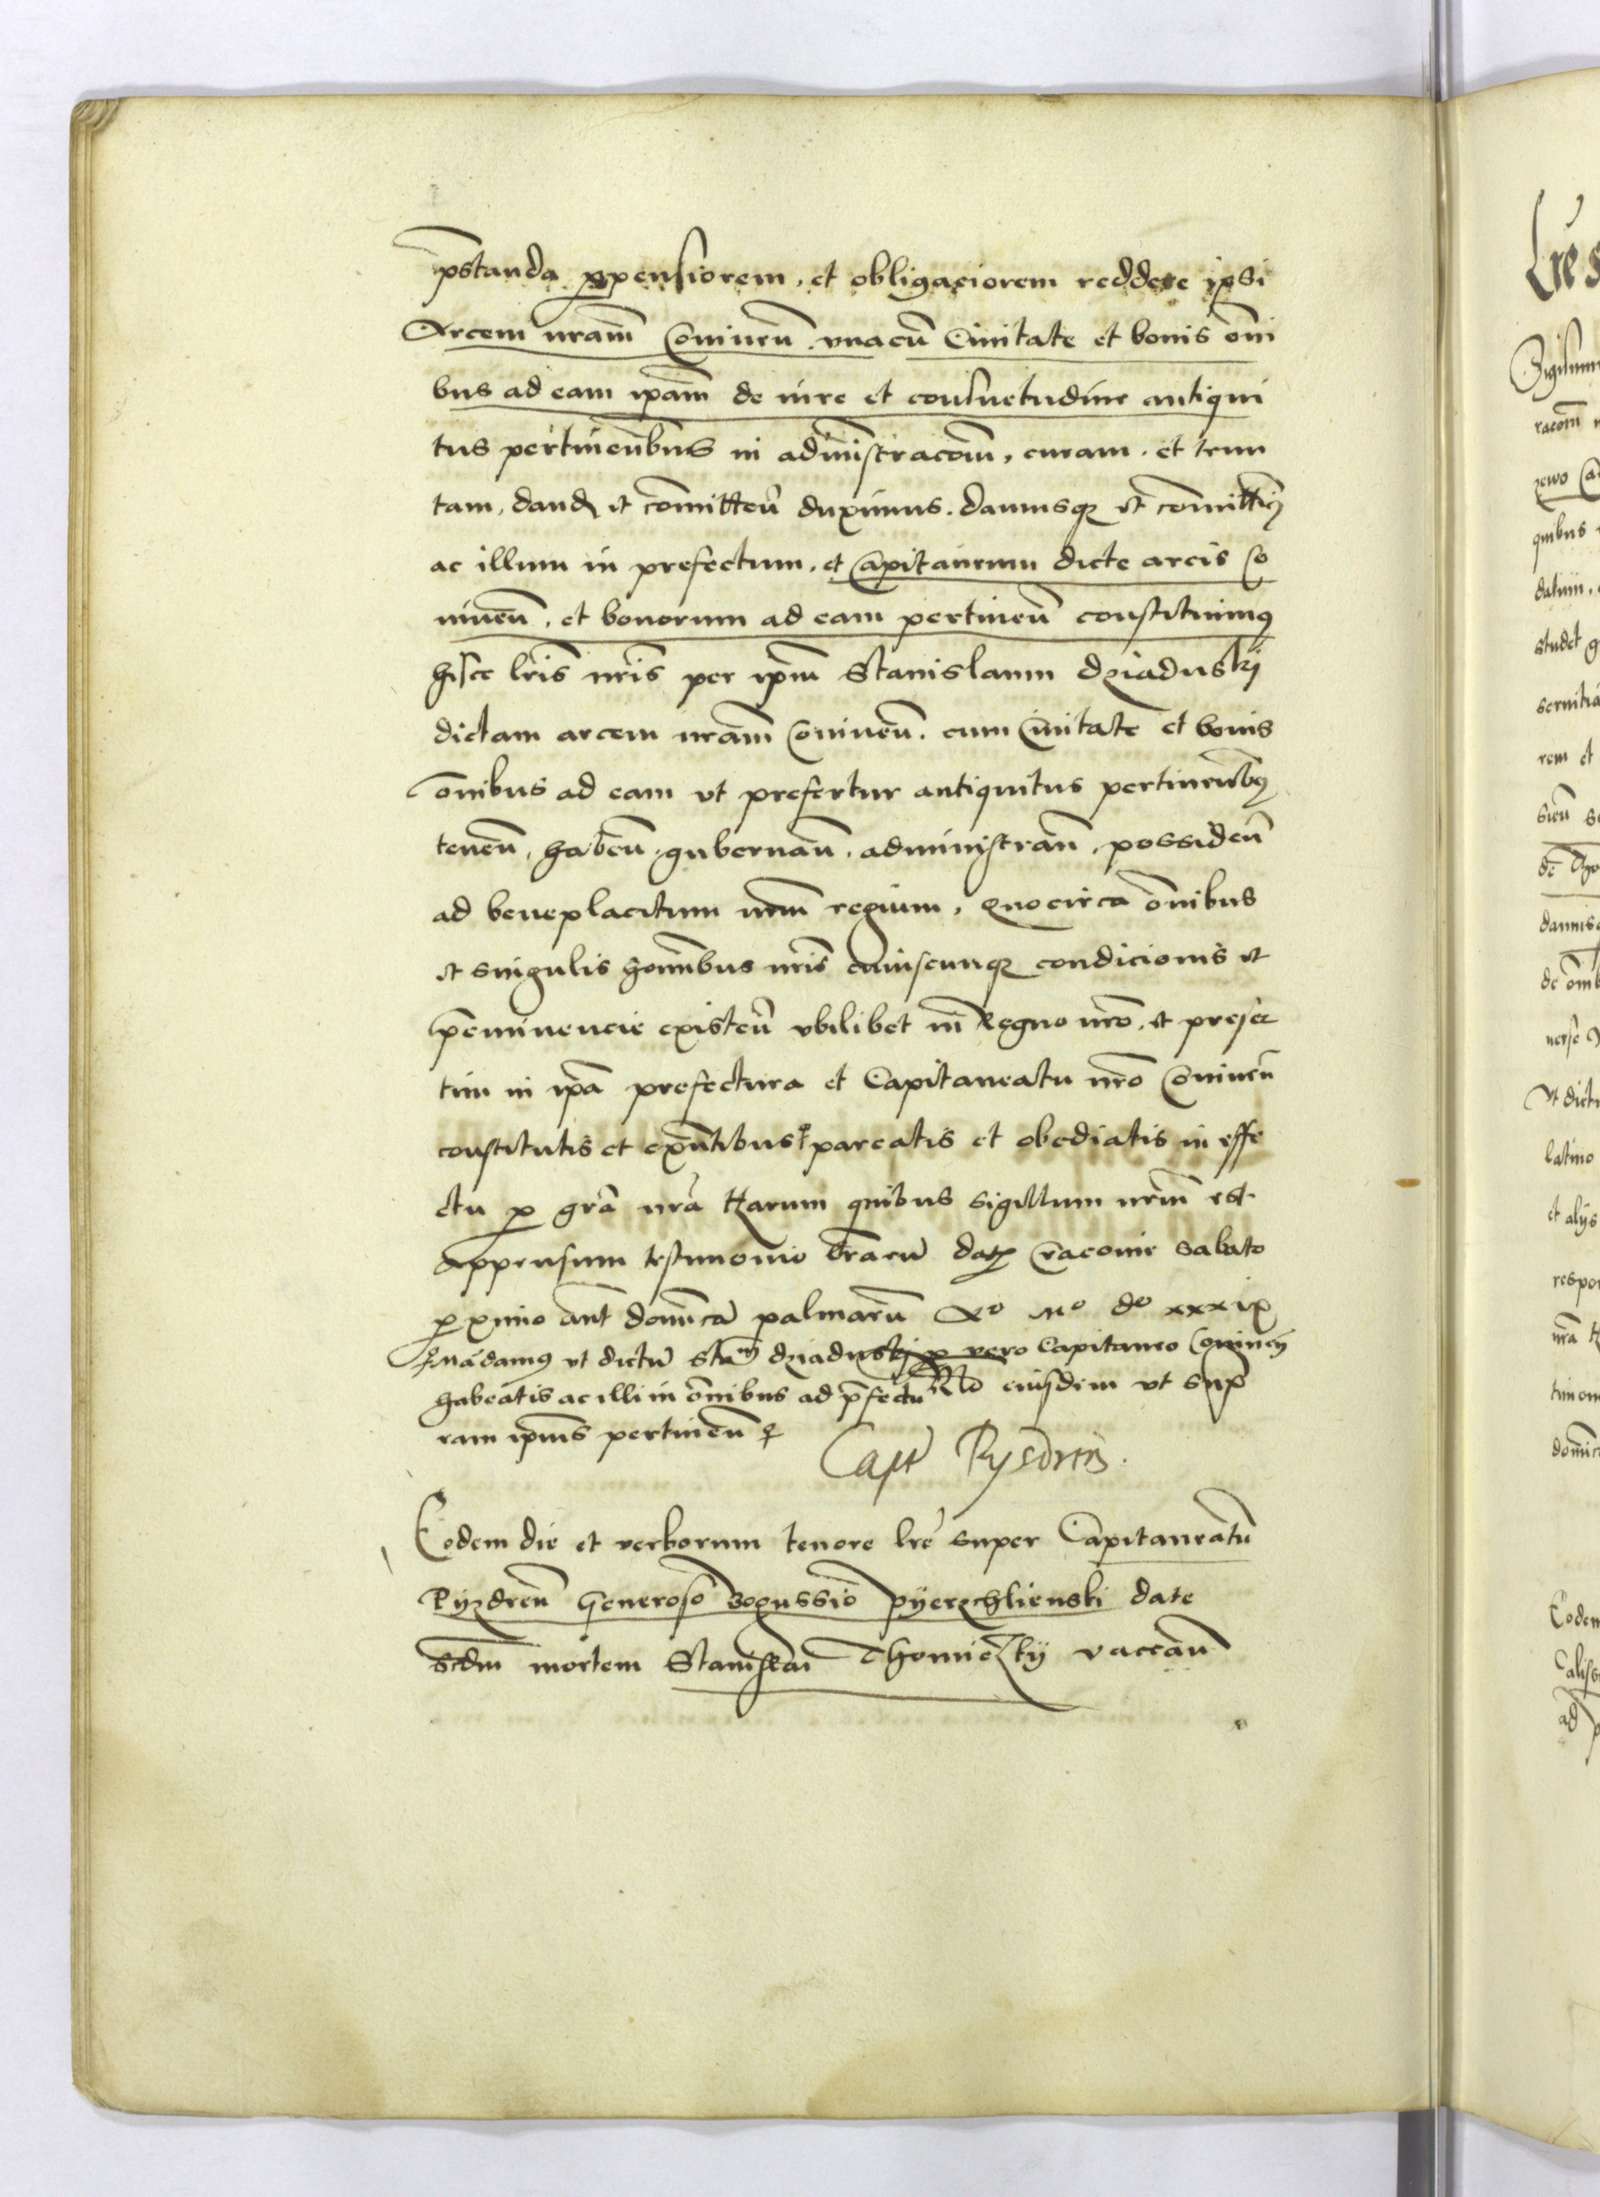 p̄standa ꝓpensiorem, et obligaciorem reddere ipsi
Arcem nr̄am Coninen̄ vnacū Ciuitate et bonis om̄i
bus ad eam ip̄am de iure et consuetudine antiqui
tus pertinen̄bus in administracōm, curam, et tenu
tam, dand et com̄itten̄ duximus. damusqꝫ et com̄ittimꝰ
ac illum in prefectum, et Capitaneum dicte arcis Co
ninen̄, et bonorum ad eam pertinen̄ constituimꝰ
hisce lr̄is nr̄is per ip̄m Stanislaum dziaduski
dictam arcem nr̄am Coninen̄. cum Ciuitate et bonis
om̄ibus ad eam vt prefertur antiquitus pertinen̄bꝰ
tenen̄, haben̄, gubernan̄, administran̄, possiden̄
ad beneplacitum nr̄m regium, Quocirca om̄ibus
et singulis hom̄ibus nr̄is cuiuscunqꝫ condicionis et
p̄eminencie existen̄ vbilibet in Regno nr̄o, et preser
tim in ip̄a prefectura et Capitaneatu nr̄o Coninen̄
constitutis et exn̄tibus pareatis et obediatis in effe
ctu ꝓ gr̄a nr̄a Harum quibus sigillum nr̄m est
appensum testimonio lr̄arū datꝫ Cracouie sabato
ꝓximo ante domīca palmarū Aº Mº dº xxxix
Mādamꝰ vt dictū Stāum dziaduski ꝓ vero Capitaneo Coninen̄
habeatis ac illi in om̄ibus ad p̄fectu Rᵒ eiusdem vt supᵃ
ram ipsius pertinen̄
Capt Pysdren̄.
Eodem die et verborum tenore lr̄e super Capitaneatū
Pyzdren̄ Generoso Bogussio pyerzchlienski date
scdm̄ mortem Stanislai Thomiczky vaccan̄
Lr̄e s
Sigilum
racom̄
quibus
datum
studet
rem et
danus
de om̄
vt dict
latino
et alijs
respo
nr̄a H
domīc
Eodem
Caliss
ad